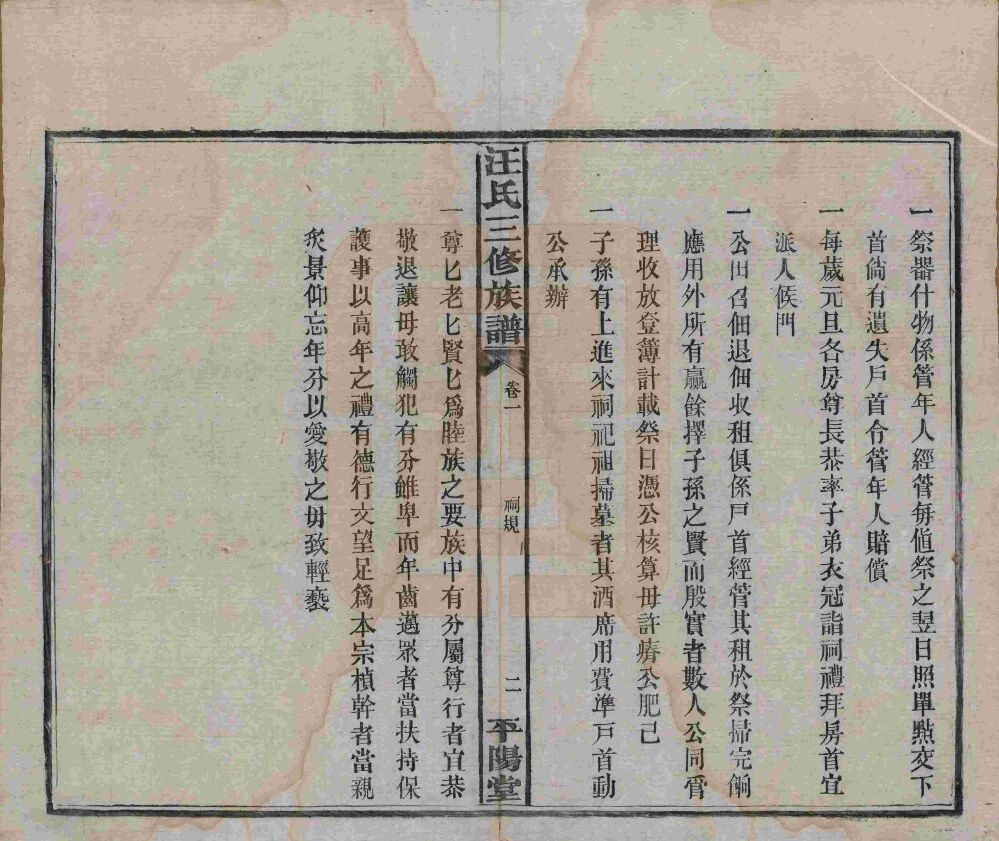 一祭器什物係管年人經管每值祭之翌日照單點交下
首倘有遺失戶首令管年人賠償
一每歲元旦各房尊長恭率子弟衣冠詣祠禮拜房首宜
派人候門
一公田召佃退佃收租俱係戶首經管其租於祭掃完餉
應用外所有贏餘擇子孫之賢而殷實者數人公同管
理收放登簿計載祭日憑公核算毋許瘠公肥己
一子孫有上進來祠祀祖掃墓者其酒席用費準戶首動
公承辦
汪氏三修族譜
卷一
祠規
二
平陽堂
一尊匕老匕賢匕爲睦族之要族中有分屬尊行者宜恭
敬退讓毋敢觸犯有分雖卑而年齒邁眾者當扶持保
護事以高年之禮有德行文望足爲本宗楨幹者當親
炙景仰忘年分以愛敬之毋致輕褻